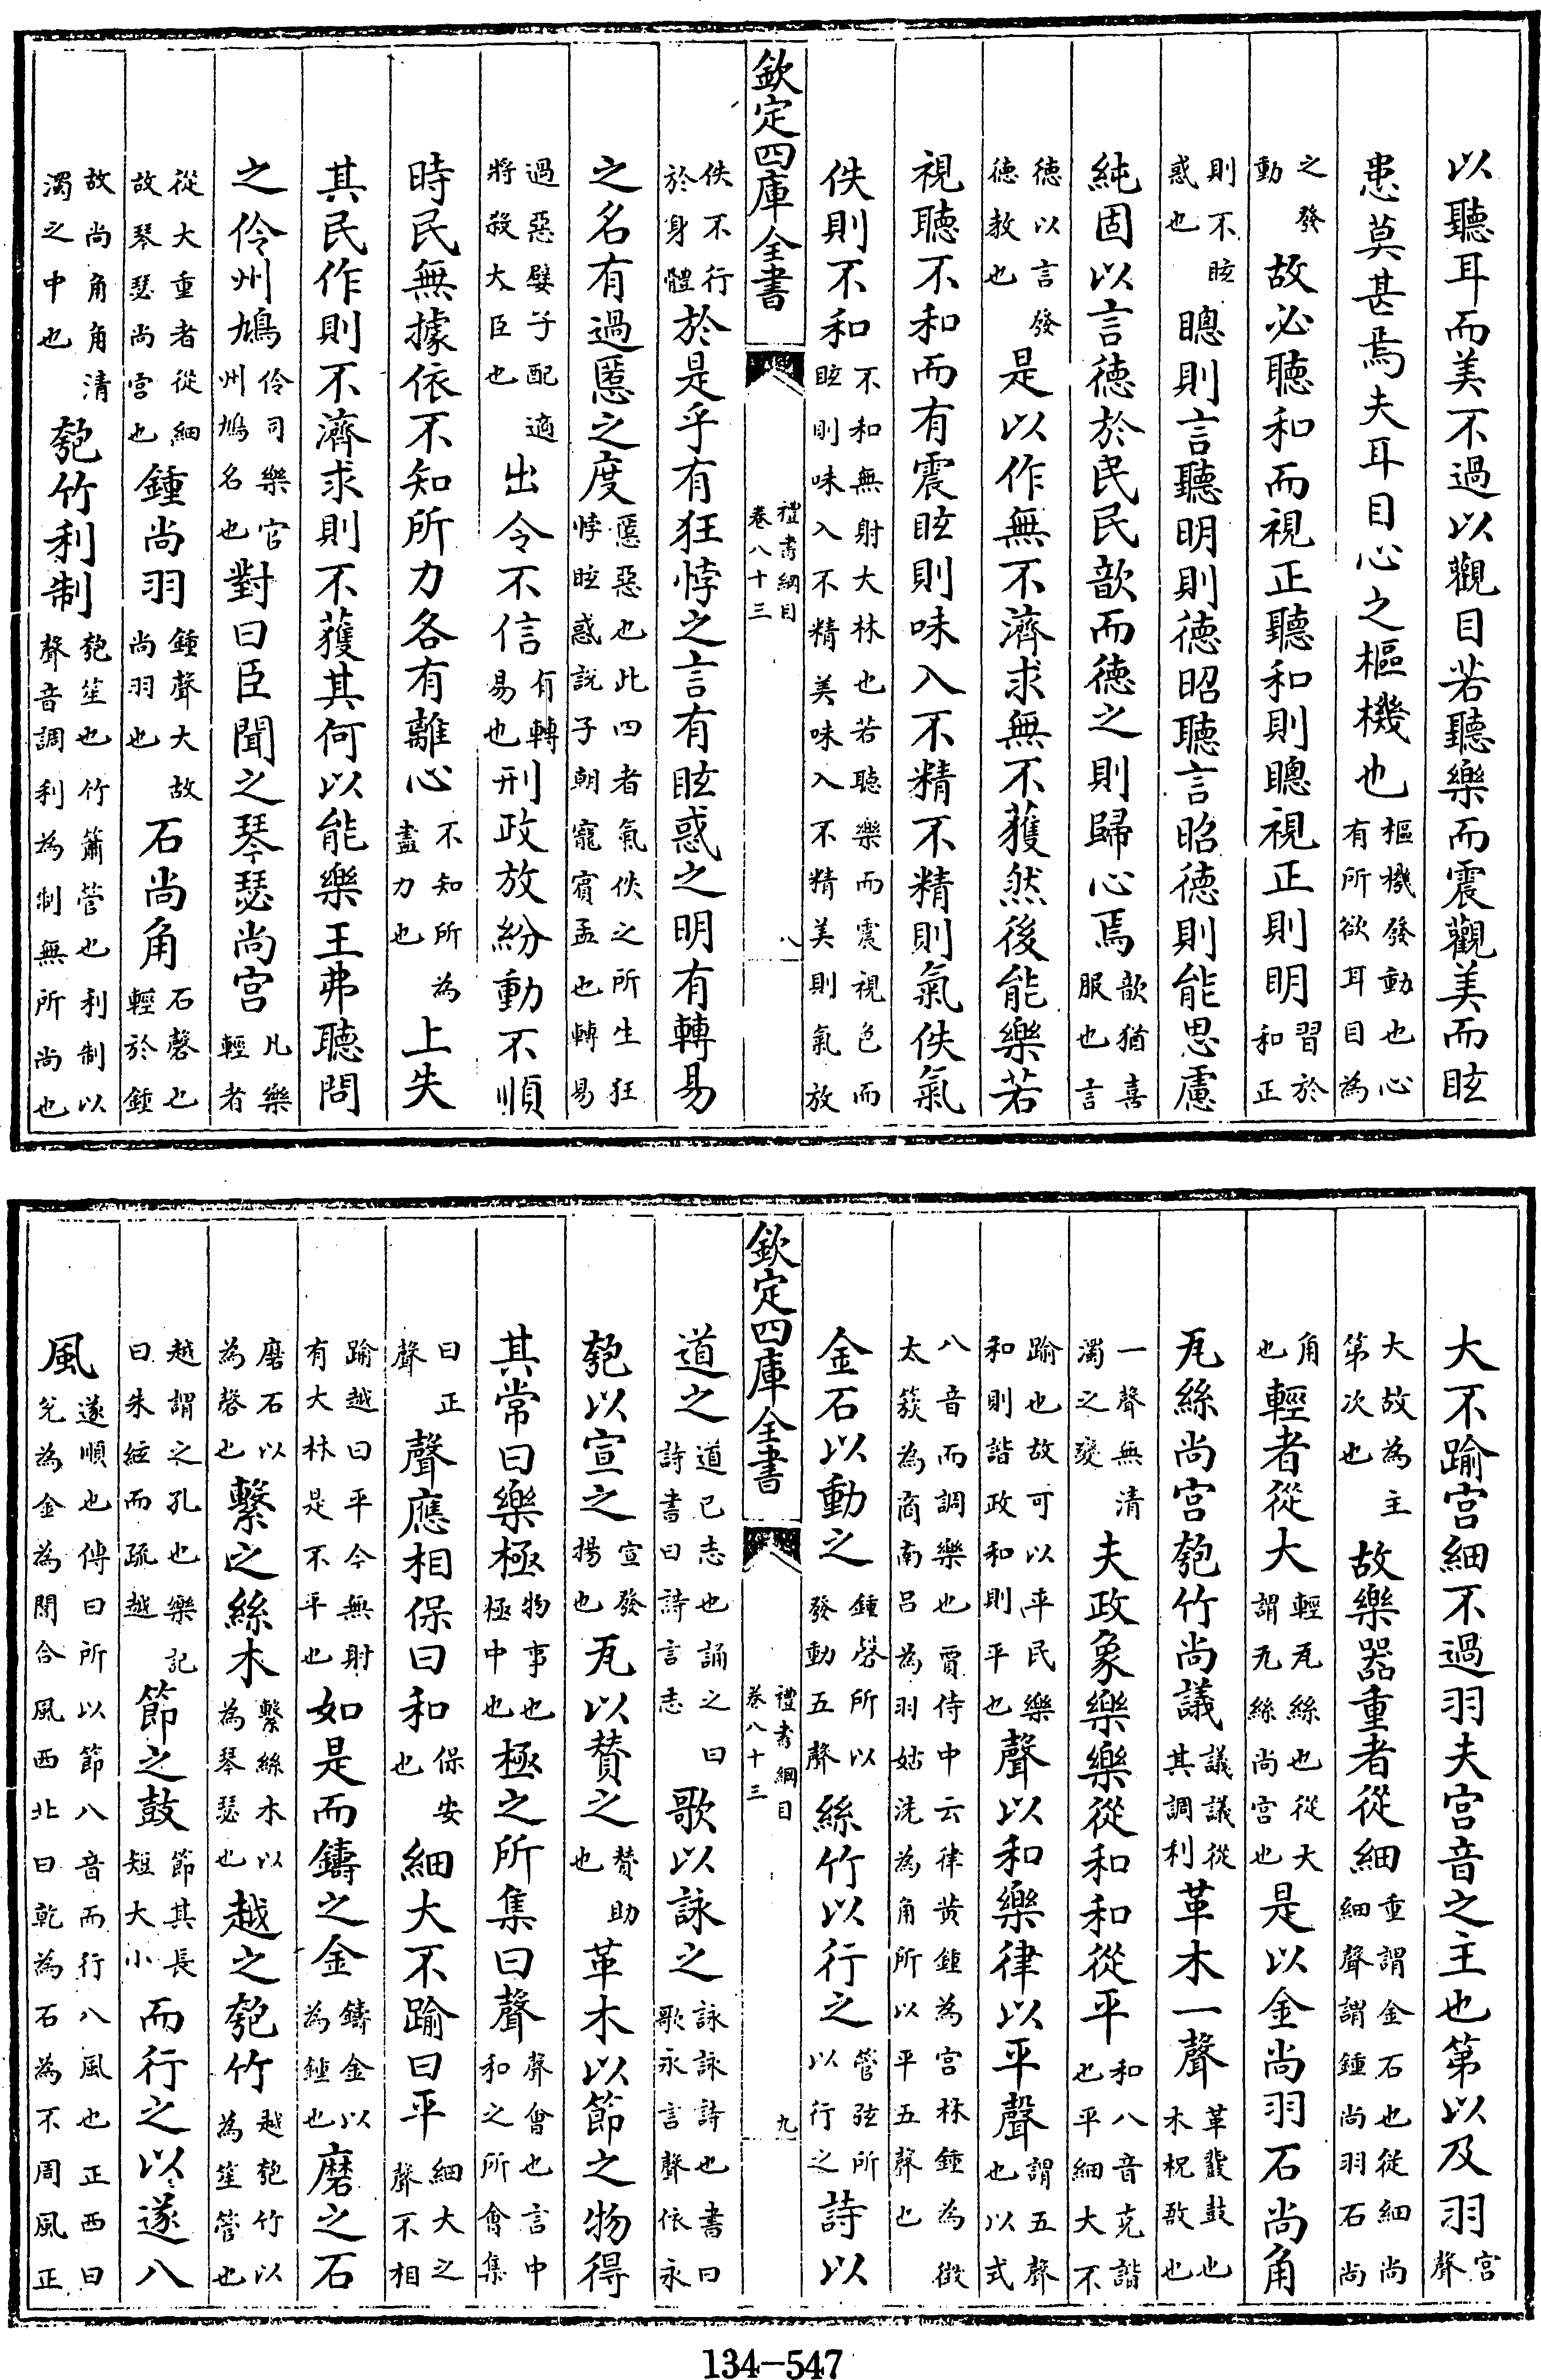 以聽耳而美不過以觀目若聽樂而震觀美而眩
患莫甚焉夫耳目心之樞機也樞機發動也心有所欲耳目為
之發動故必聽和而視正聽和則聰視正則明習於和正
則不眩惑也聰則言聽明則德昭聽言昭德則能思慮
純固以言德於民民歆而德之則歸心焉歆猶喜服也言
德以言發德教也是以作無不濟求無不獲然後能樂若
視聽不和而有震眩則味入不精不精則氣佚氣
佚則不和不和無射大林也若聽樂而震視色而眩則味入不精美味入不精美則氣放
欽定四庫全書
禮書綱目
卷八十三
八
佚不行於身體於是乎有狂悖之言有眩惑之明有轉易
之名有過慝之度慝惡也此四者氣佚之所生狂悖眩惑説子朝寵賓孟也轉易
過惡嬖子配適將殺大臣也出令不信有轉易也刑政放紛動不順
時民無據依不知所力各有離心不知所為盡力也上失
其民作則不濟求則不獲其何以能樂王弗聽問
之伶州鳩伶司樂官州鳩名也對曰臣聞之琴瑟尚宮凡樂輕者
從大重者從細故琴瑟尚宮也鍾尚羽鍾聲大故尚羽也石尚角石磬也輕於鍾
故尚角角清濁之中也匏竹利制匏笙也竹簫管也利制以聲音調利為制無所尚也
大不踰宮細不過羽夫宮音之主也第以及羽宮聲
大故為主第次也故樂器重者從細重謂金石也從細尚細聲謂鍾尚羽石尚
角也輕者從大輕瓦絲也從大謂瓦絲尚宮也是以金尚羽石尚角
瓦絲尚宮匏竹尚議議議從其調利革木一聲革鼗鼓也木柷敔也
一聲無清濁之變夫政象樂樂從和和從平和八音克諧也平細大不
踰也故可以平民樂和則諧政和則平也聲以和樂律以平聲謂五聲也以式
八音而調樂也賈侍中云律黄鍾為宮林鍾為徵太蔟為商南呂為羽姑洗為角所以平五聲也
金石以動之鍾磬所以發動五聲絲竹以行之管弦所以行之詩以
欽定四庫全書
禮書綱目
卷八十三
九
道之道己志也誦之曰詩書曰詩言志歌以詠之詠詠詩也書曰歌永言聲依永
匏以宣之宣發揚也瓦以贊之贊助也革木以節之物得
其常曰樂極物事也極中也極之所集曰聲聲會也言中和之所會集
曰正聲聲應相保曰和保安也細大不踰曰平細大之聲不相
踰越曰平今無射有大林是不平也如是而鑄之金鑄金以為鍾也磨之石
磨石以為磬也繫之絲木繫絲木以為琴瑟也越之匏竹越匏竹以為笙管也
越謂之孔也樂記曰朱絃而疏越節之鼓節其長短大小而行之以遂八
風遂順也傳曰所以節八音而行八風也正西曰兌為金為閶合風西北曰乾為石為不周風正
134-547